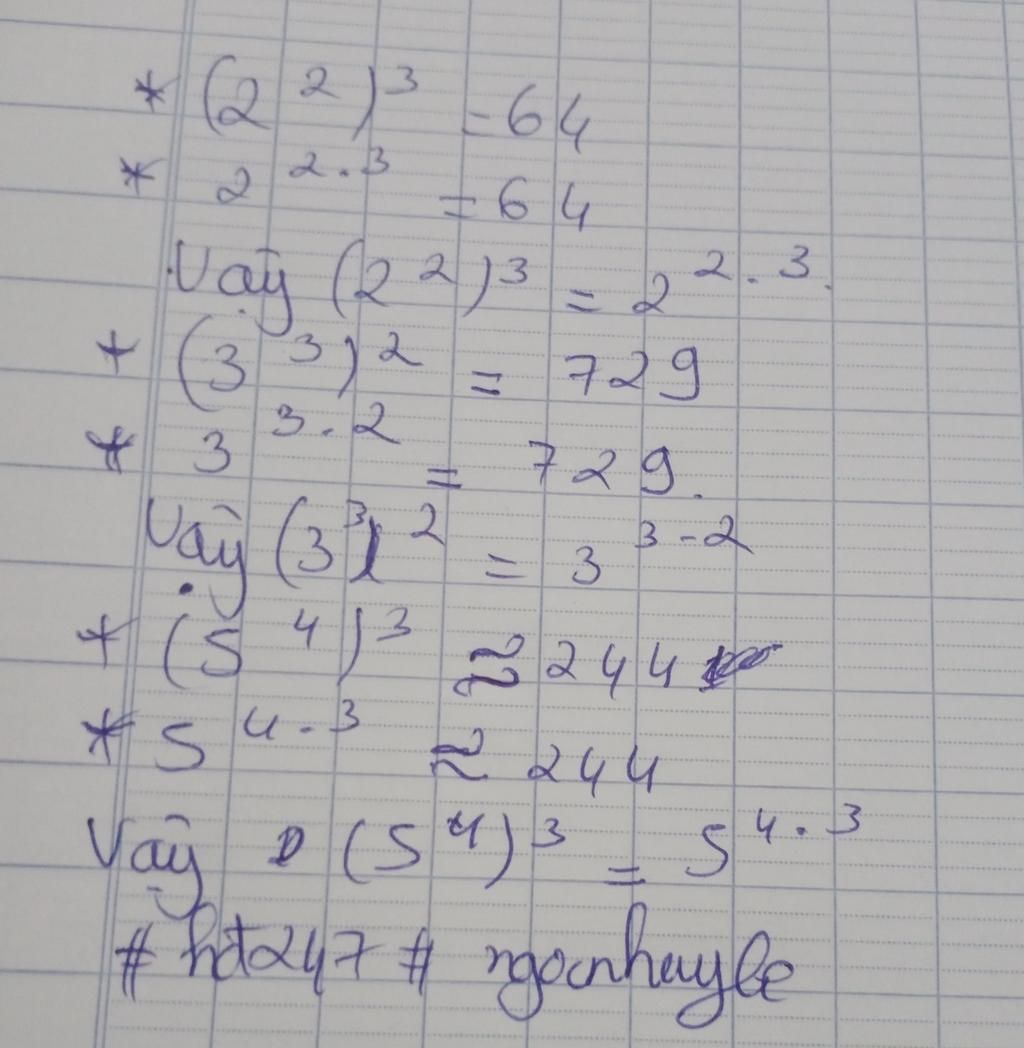 * (2²)³ = 64
* 2^2.3 = 64
Vậy (2²)³ = 2^2.3.
+ (3³)² = 729
* 3^3.2 = 729.
Vậy (3³)² = 3^3.2
+ (5⁴)³ ≈ 244
* 5^4.3 ≈ 244
Vậy (5⁴)³ = 5^4.3
# hđ247 # ngocnhayle